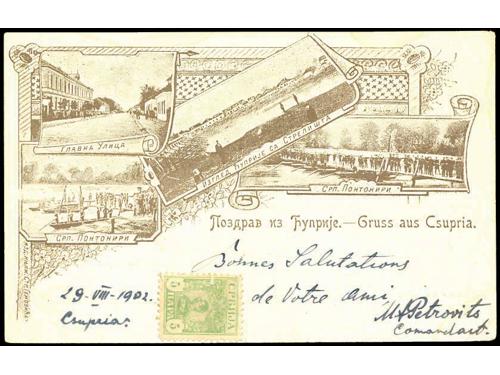 Главна Улица
Изглед Ћуприје са Стрелишта
Срп. Понтонири
Срп. Понтонири
Поздрав из Ћуприје. — Gruss aus Csupria.
Bonnes Salutations
29-VIII-1902.
de Votre ami
Csupria.
M. Petrovits
Comandant.
СРБИЈА
5 ПАРА 5